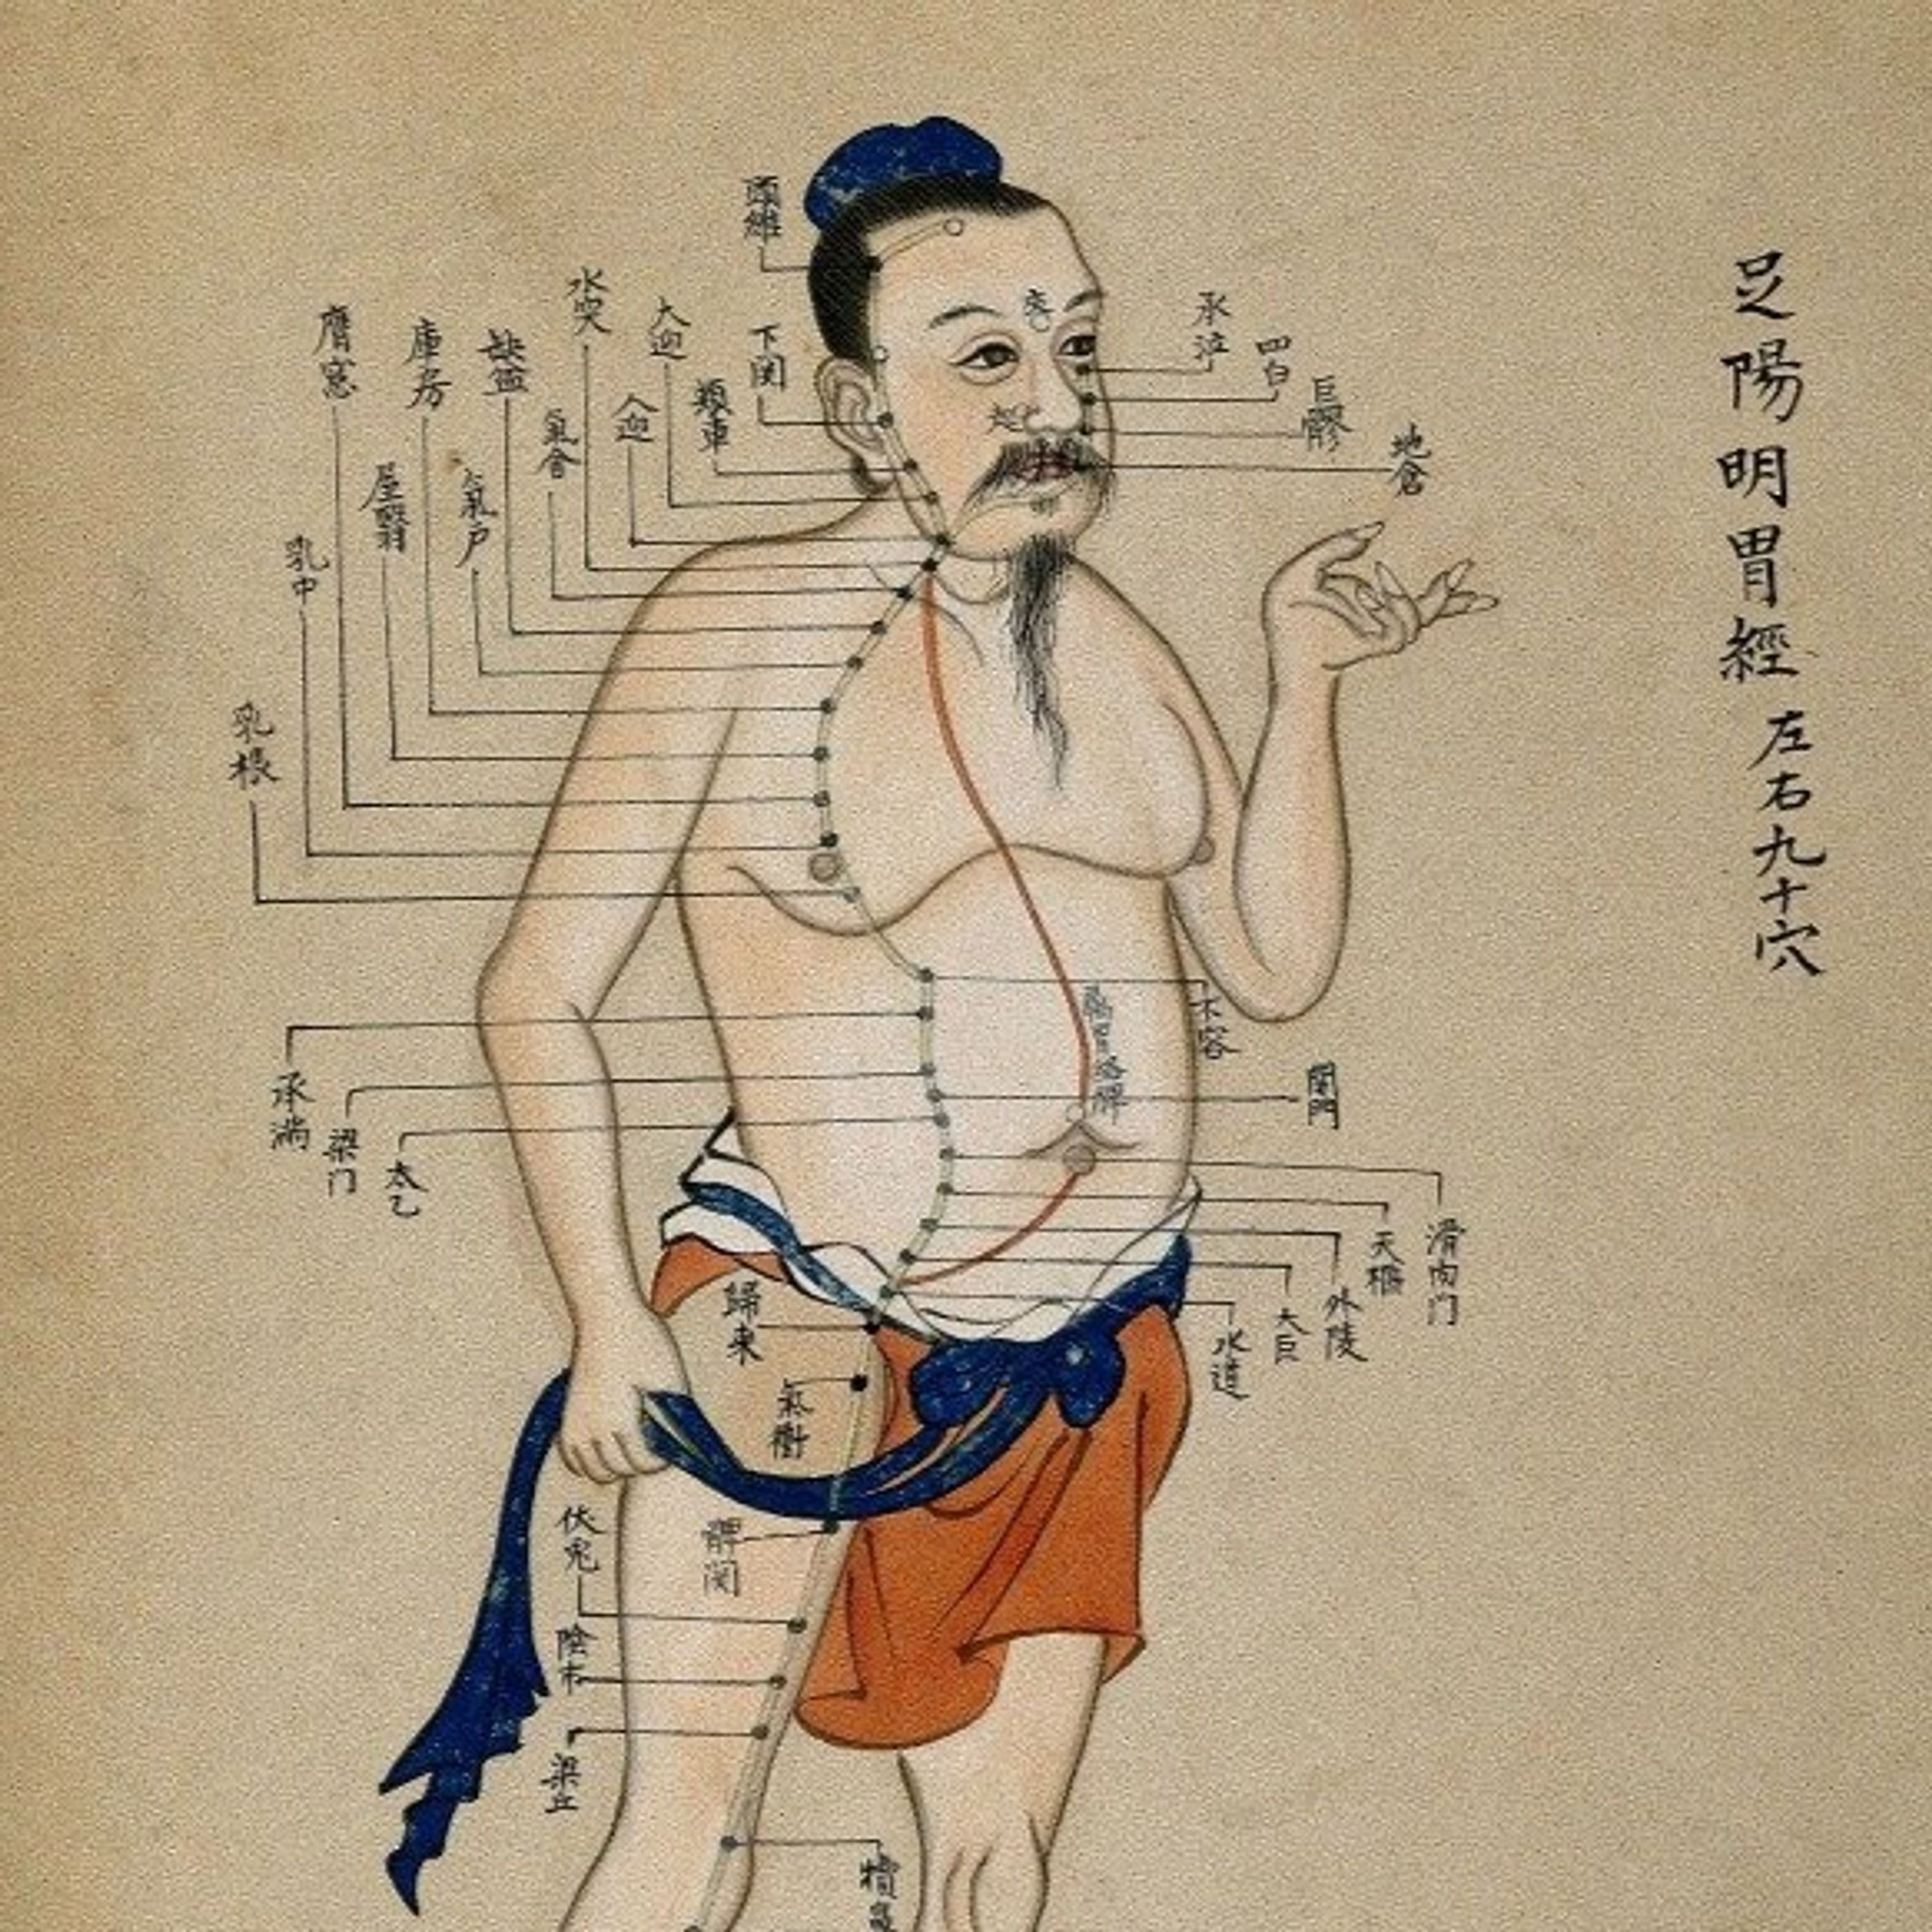 足陽明胃經
左右九十穴
頭維
下関
頰車
大迎
人迎
水突
氣舍
缺盆
氣户
庫房
屋翳
膺窓
乳中
乳根
承泣
四白
巨髎
地倉
不容
承満
梁门
関門
太乙
滑肉门
天樞
外陵
大巨
水道
歸來
氣衝
髀関
伏兎
陰市
梁丘
犢鼻